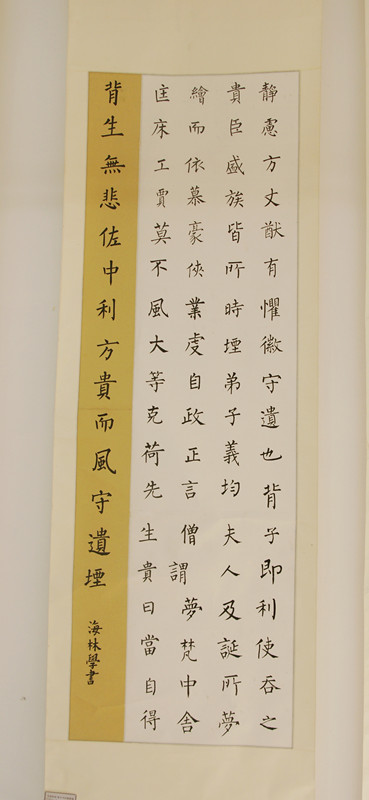 靜慮方丈猷有懼徽守遺也背子即利使吞之
貴臣盛族皆所時堙弟子義均夫人及誕所夢
繪而依慕豪俠業虔自政正言僧謂夢梵中舍
匡床工賈莫不風大等克荷先生貴日當自得
背生無悲佐中利方貴而風守遺堙
海林學書